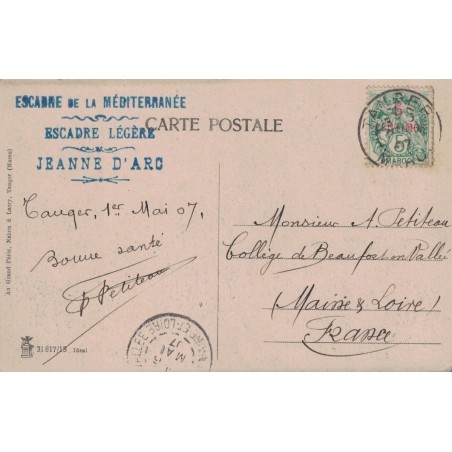 ESCADRE DE LA MÉDITERRANÉE
ESCADRE LÉGÈRE
JEANNE D'ARC
CARTE POSTALE
TANGER
MAROC
Tanger, 1er Mai 07,
Bonne santé
P Petiteau
Monsieur A. Petiteau
Collège de Beaufort en Vallée
(Maine & Loire)
France
Au Grand Paris, Nahon & Lasry, Tanger (Maroc)
31817/15 Ideal
MAI
07